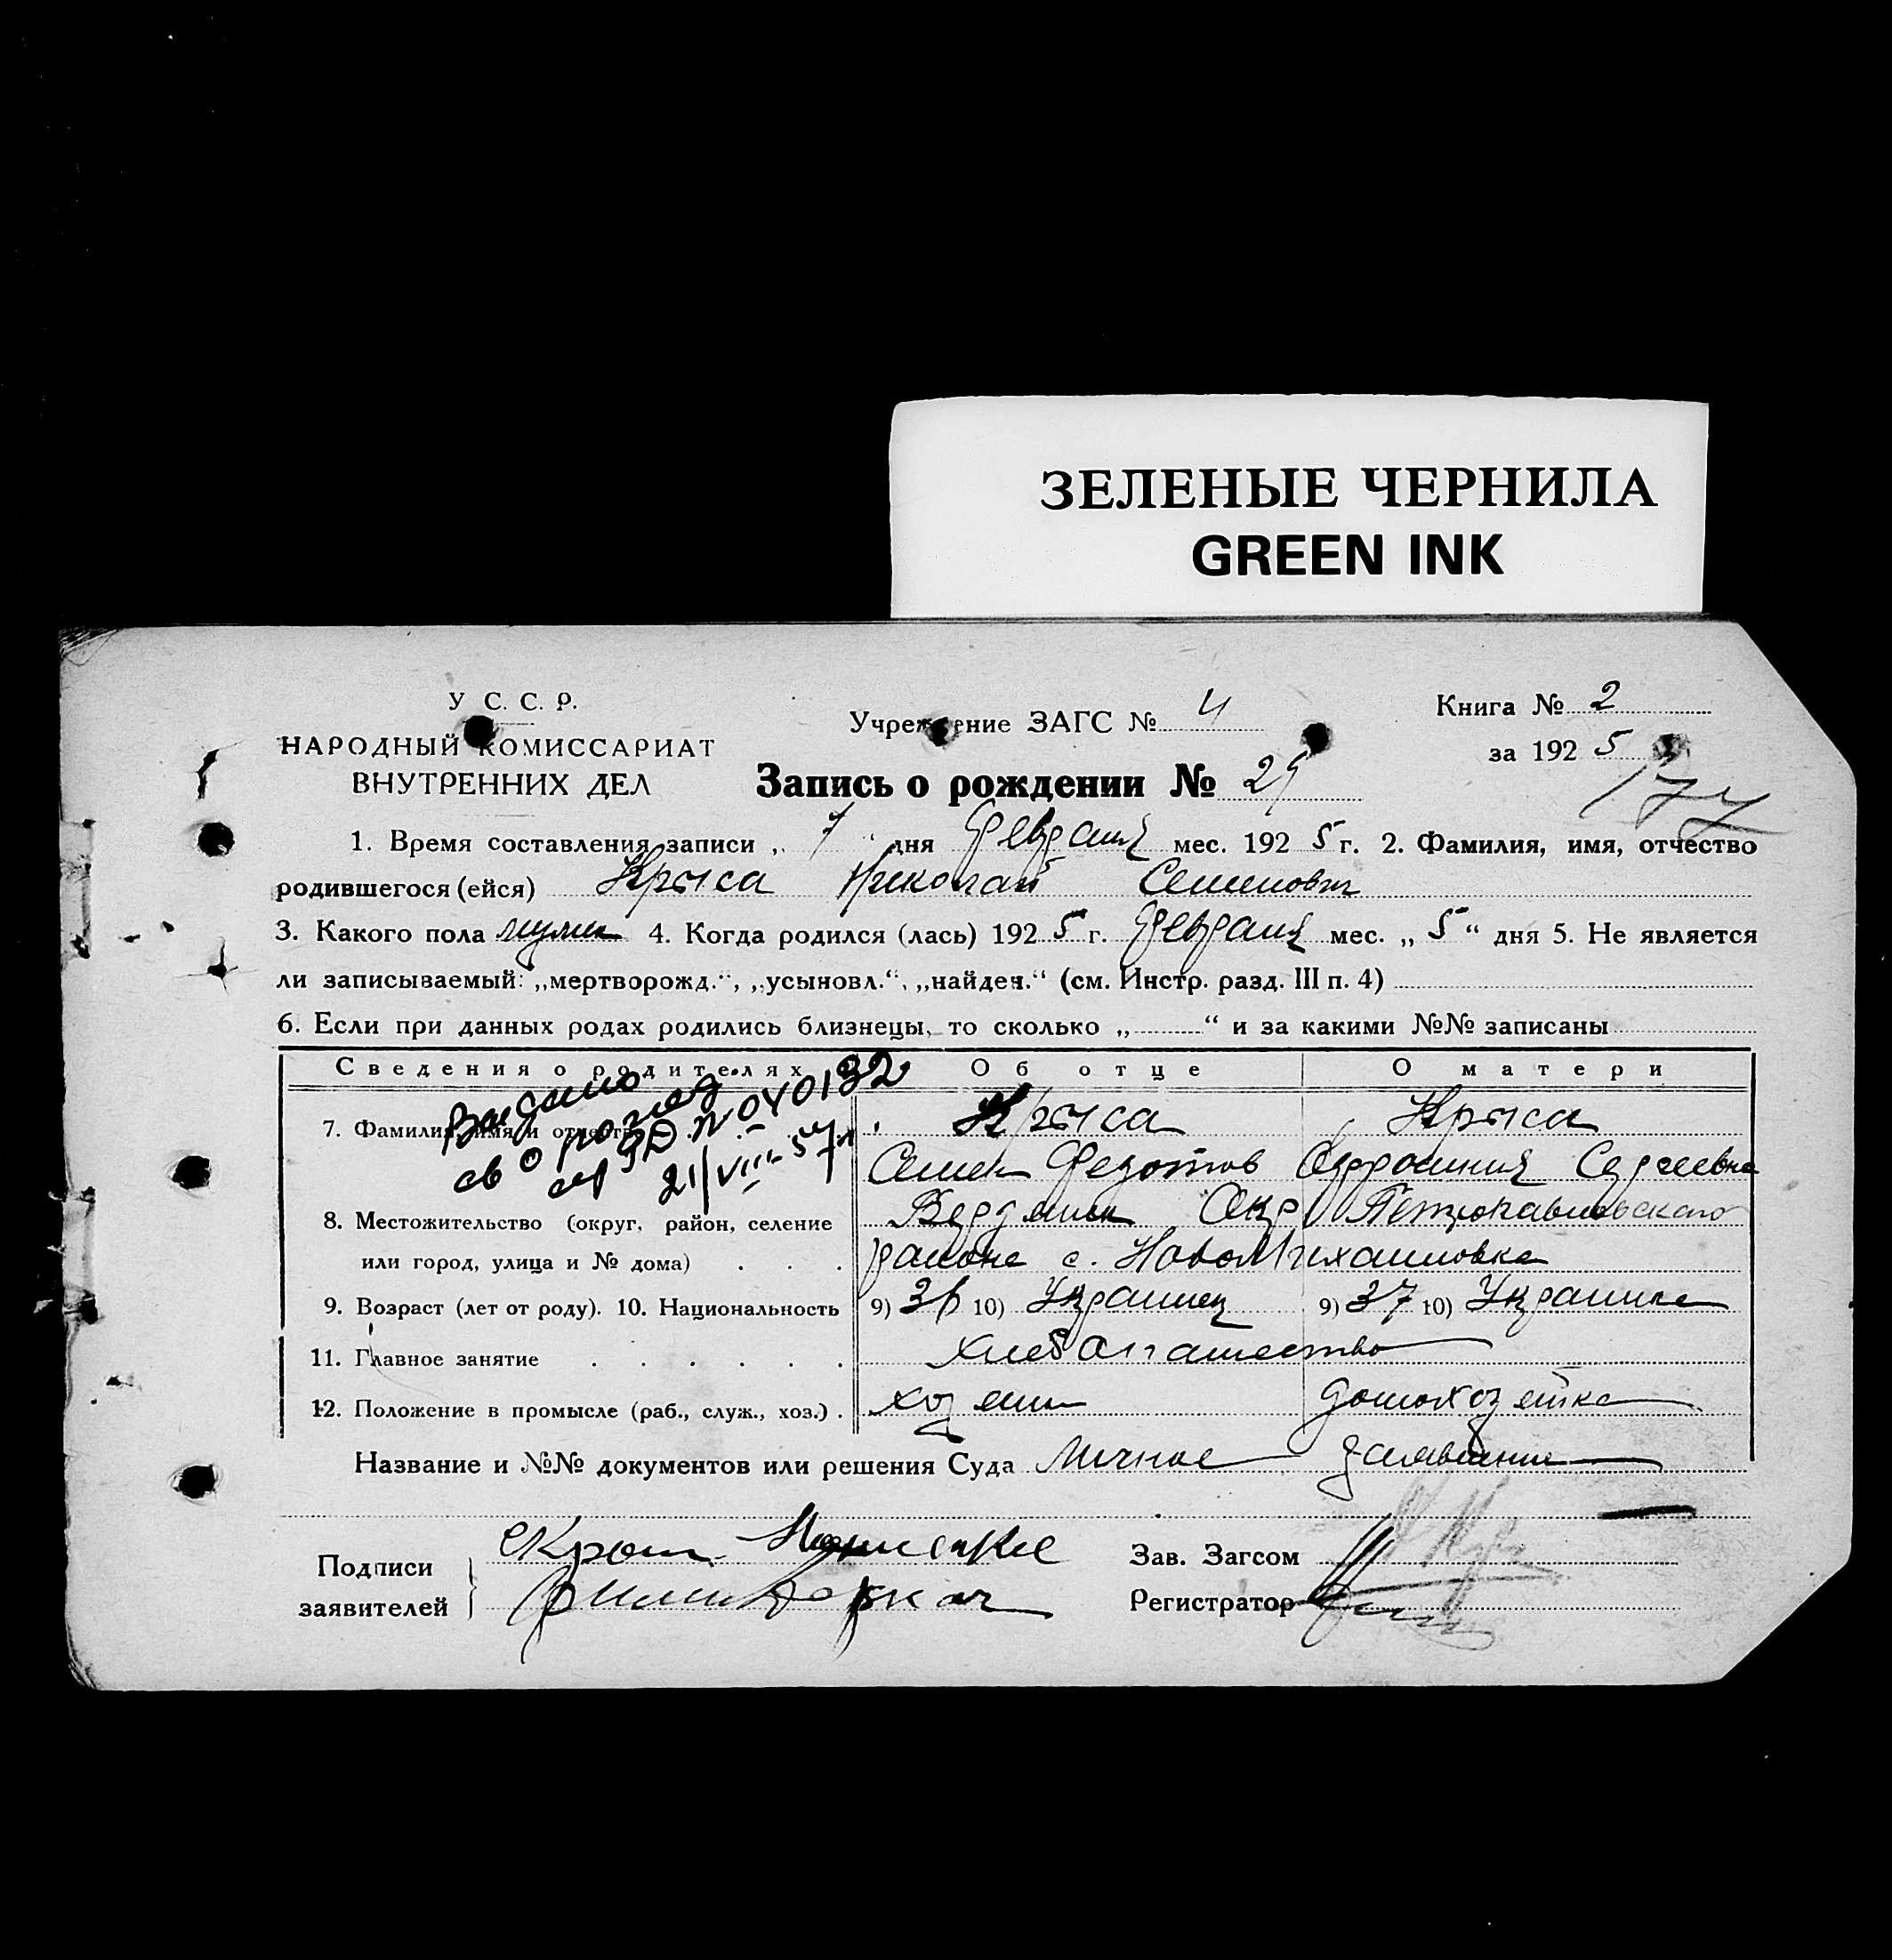 ЗЕЛЕНЫЕ ЧЕРНИЛА
GREEN INK
У С. С. Р.
НАРОДНЫЙ КОМИССАРИАТ
ВНУТРЕННИХ ДЕЛ
Учреждение ЗАГС № 4
Книга № 2
за 1925
Запись о рождении № 29
1. Время составления записи „ 7 “ дня Февраля мес. 1925 г. 2. Фамилия, имя, отчество
родившегося (ейся) Крыса Николай Семенович
3. Какого пола мужск 4. Когда родился (лась) 1925 г. Февраля мес. „ 5 “ дня 5. Не является
ли записываемый: „мертворожд.“, „усыновл.“, „найден.“ (см. Инстр. разд. III п. 4)
6. Если при данных родах родились близнецы, то сколько „ “ и за какими №№ записаны
Сведения о родителях Об отце О матери
Выдано
св о рожд
№ 040132
21/VIII-57
7. Фамилия, имя и отчество Крыса Крыса
Семен Федотов Сергеевна
8. Местожительство (округ, район, селение Бердянск Окр Петропавловского
или город, улица и № дома) . . . района с. НовоМихайловка
9. Возраст (лет от роду). 10. Национальность 9) 36 10) Украинец 9) 37 10) Украинка
11. Главное занятие . . . . . . хлебопашество
12. Положение в промысле (раб., служ., хоз.) . хозяин домохозяйка
Название и №№ документов или решения Суда Личное заявление
Подписи
заявителей
Зав. Загсом
Регистратор